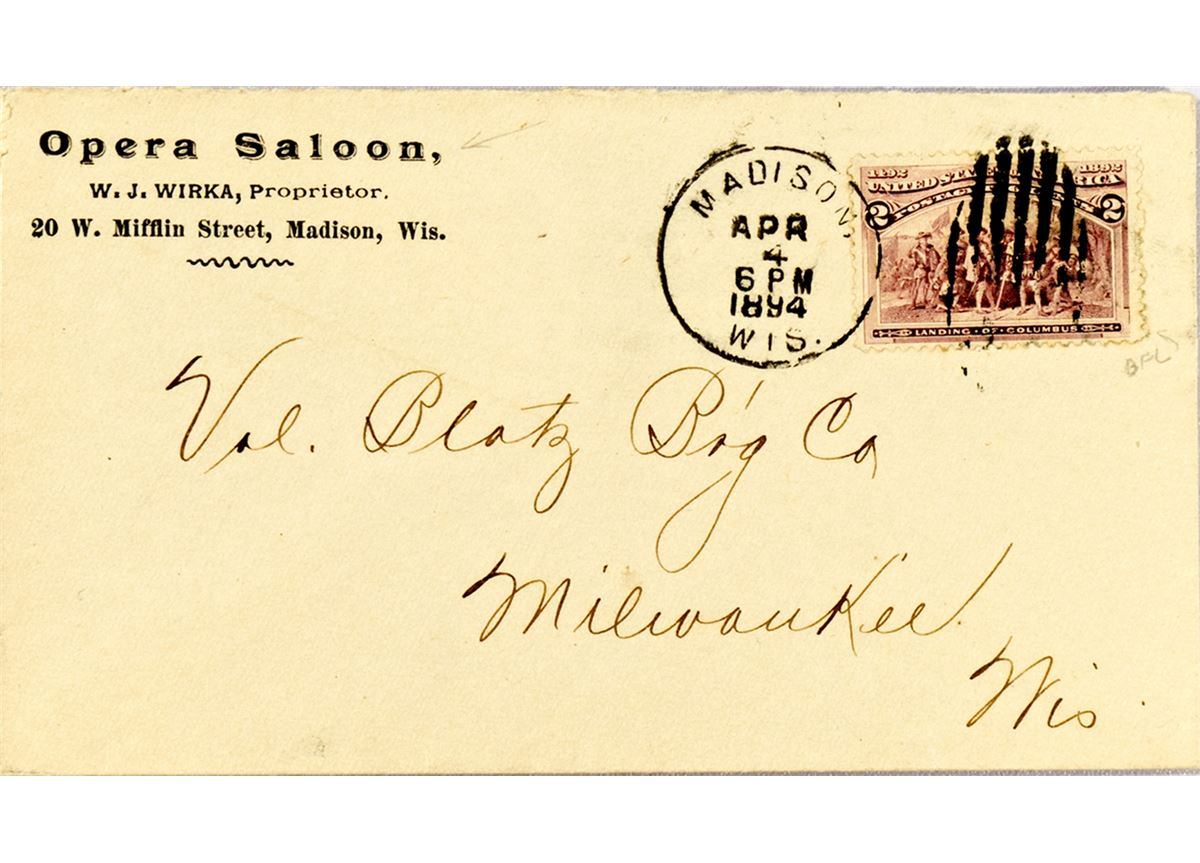 Opera Saloon,
W. J. WIRKA, Proprietor.
20 W. Mifflin Street, Madison, Wis.
MADISON,
APR
4
6 PM
1894
WIS.
1492 1892
UNITED STATES OF AMERICA
POSTAGE TWO CENTS
2 2
LANDING · OF · COLUMBUS
BFL
Val. Blatz B'g Co
Milwaukee.
Wis